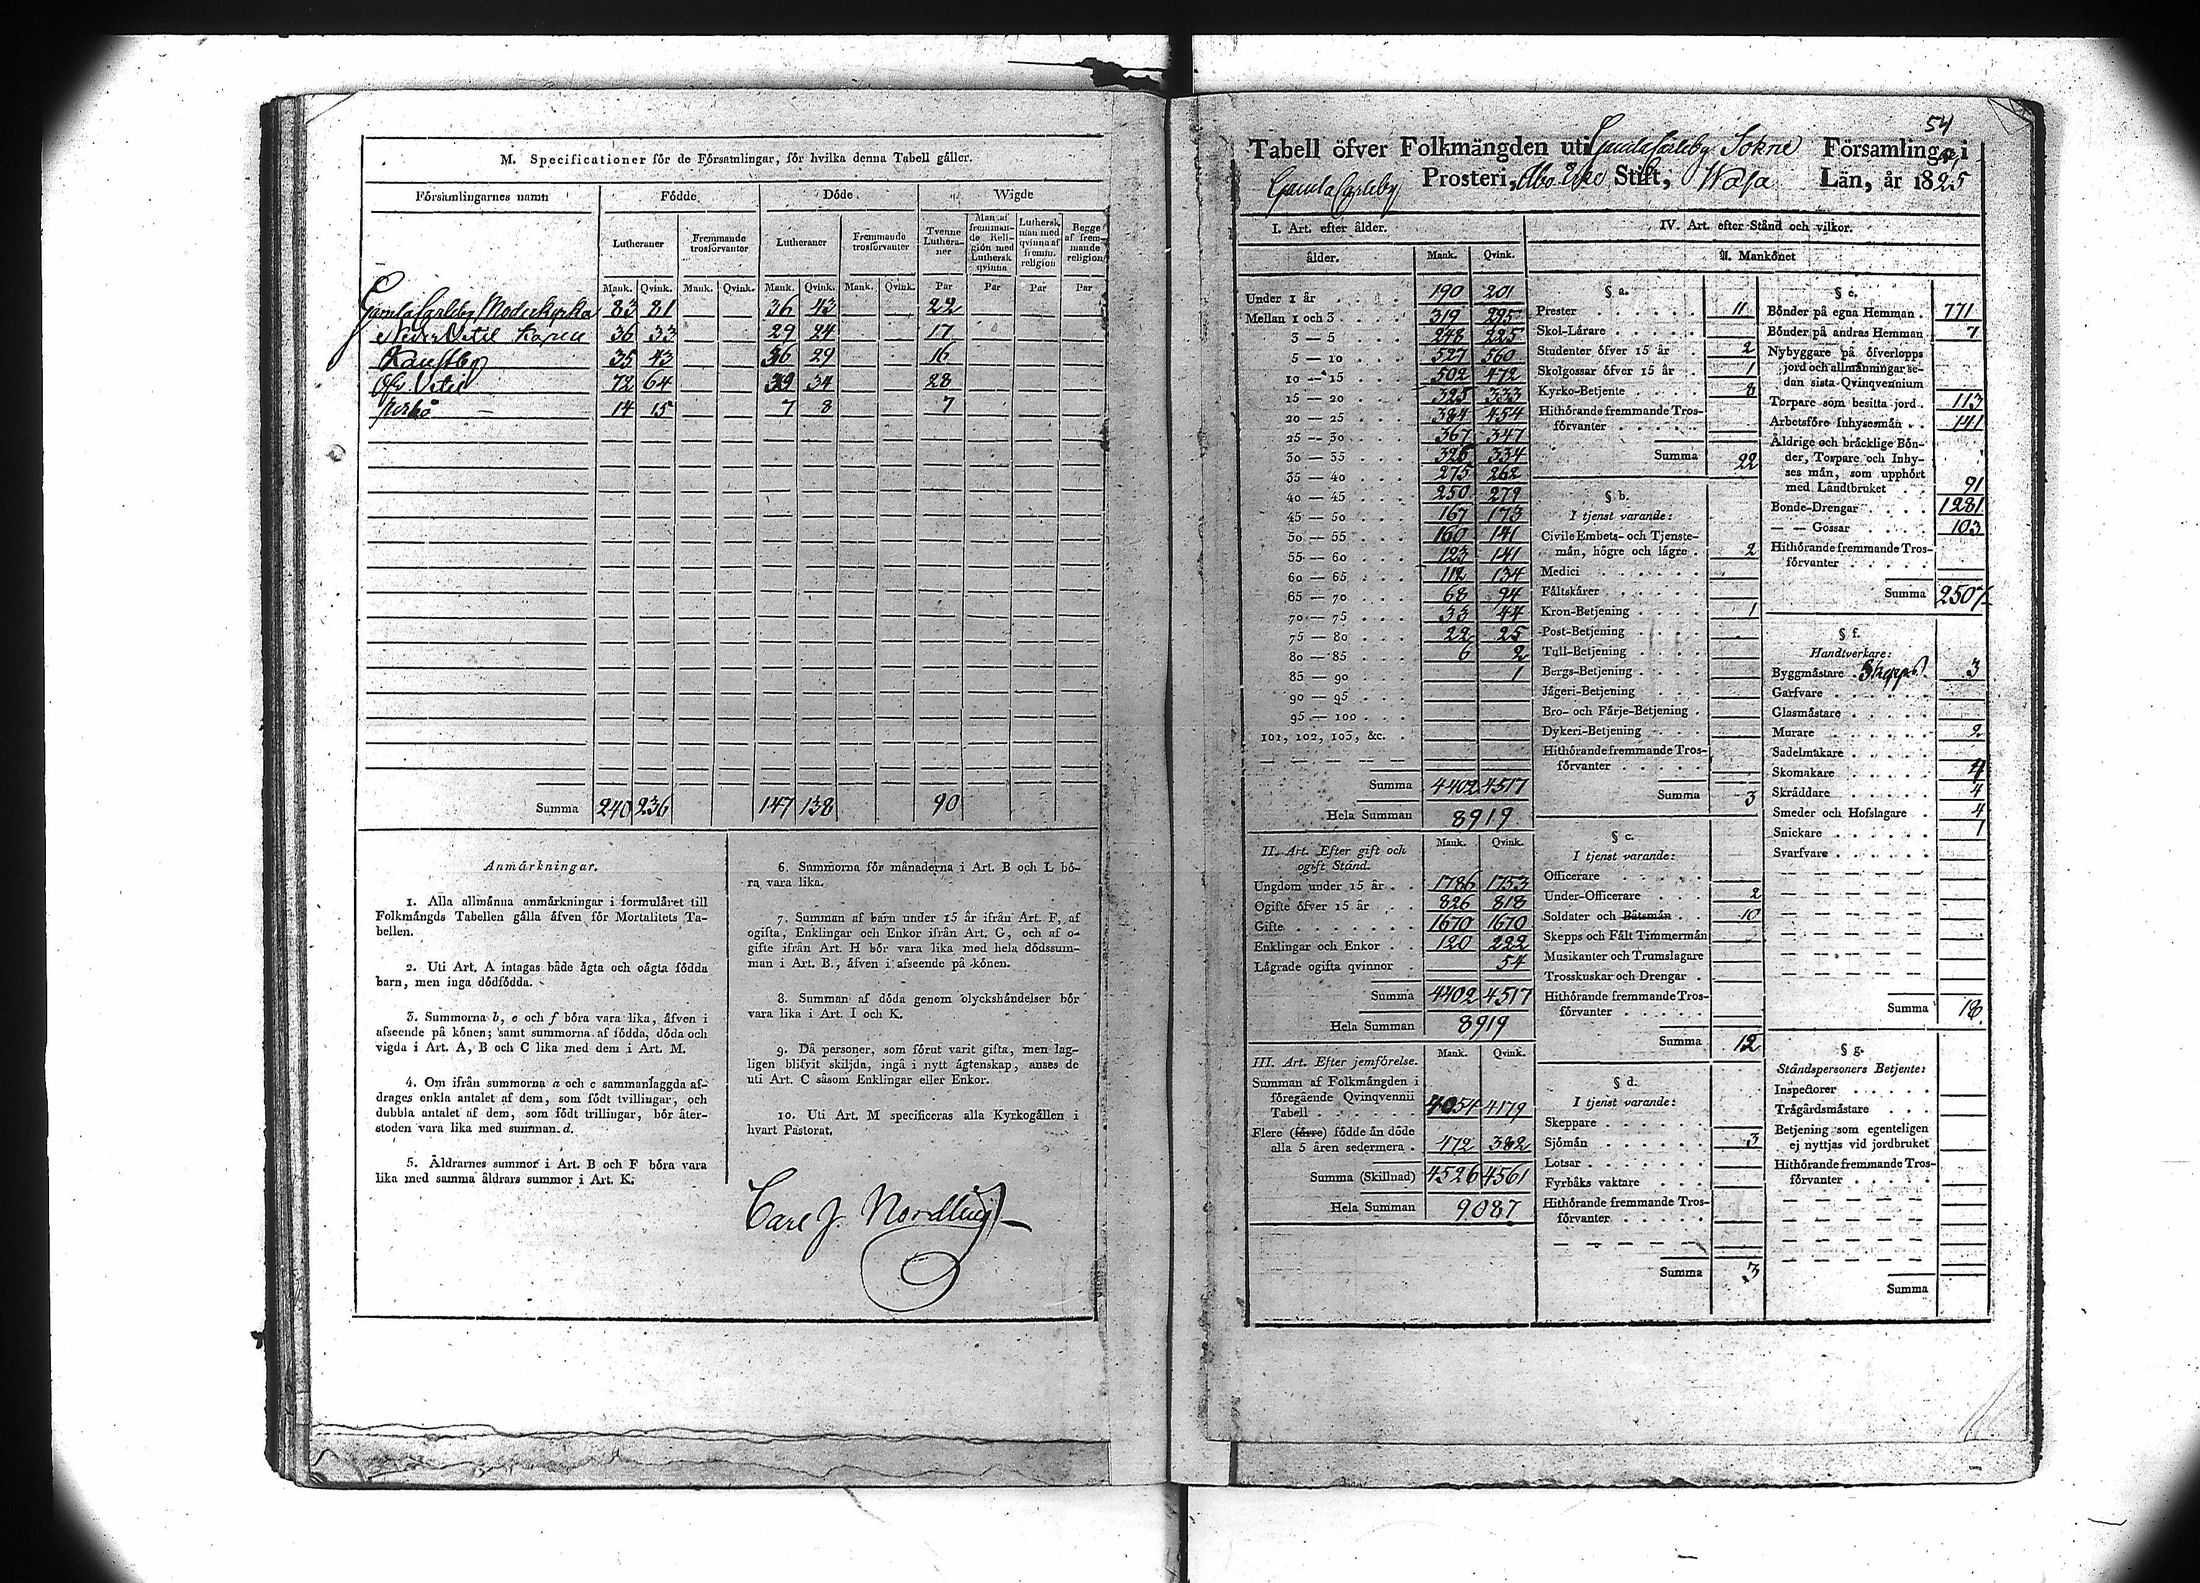 M. Specificationer för de Församlingar, för hvilka denna Tabell gäller.
Församlingarnes namn Födde Döde. Wigde
Lutheraner Fremmande trosförvanter Lutheraner Fremmande trosförvanter Tvenne Lutheraner Man af fremmande Religion med Luthersk qvinna Luthersk man med qvinna af fremm. religion Begge af fremmande religion
Mank. Qvink. Mank. Qvink. Mank. Qvink. Mank. Qvink. Par Par Par Par
GamlaCarleby Moderkyrka 83 81 36 43 22
Neder Vetil 36 33 29 24 17
Kaustby 35 43 36 29 16
Öfv. Vetil 72 64 39 34 28
Perho 14 15 7 8 7
Summa 240 236 147 138 90
Anmärkningar.
1. Alla allmänna anmärkningar i formuläret till
Folkmängds Tabellen gälla äfven för Mortalitets Ta-
bellen.
2. Uti Art. A intagas både ägta och oägta födda
barn, men inga dödfödda.
3. Summorna b, e och f böra vara lika, äfven i
afseende på könen; samt summorna af födda, döda och
vigda i Art. A, B och C lika med dem i Art. M.
4. Om ifrån summorna a och c sammanlaggda af-
drages enkla antalet af dem, som födt tvillingar, och
dubbla antalet af dem, som födt trillingar, bör åter-
stoden vara lika med summan d.
5. Åldrarnes summor i Art. B och F böra vara
lika med samma åldrars summor i Art. K.
6. Summorna för månaderna i Art. B och L bö-
ra vara lika.
7. Summan af barn under 15 år ifrån Art. F, af
ogifta, Enklingar och Enkor ifrån Art. G, och af o-
gifte ifrån Art. H bör vara lika med hela dödssum-
man i Art. B., äfven i afseende på könen.
8. Summan af döda genom olyckshändelser bör
vara lika i Art. I och K.
9. Då personer, som förut varit gifta, men lag-
ligen blifvit skiljda, ingå i nytt ägtenskap, anses de
uti Art. C såsom Enklingar eller Enkor.
10. Uti Art. M specificeras alla Kyrkogällen i
hvart Pastorat.
Carl J. Nordling
54
Tabell öfver Folkmängden uti GamlaCarleby Sokne Församling i
GamlaCarleby Prosteri, Åbo Ärke Stift, Wasa Län, år 1825
I. Art. efter ålder.
ålder. Mank. Qvink.
Under 1 år 190 201
Mellan 1 och 3 319 295
3 — 5 248 225
5 — 10 527 560
10 — 15 502 472
15 — 20 325 333
20 — 25 384 454
25 — 30 367 347
30 — 35 326 334
35 — 40 275 262
40 — 45 250 279
45 — 50 167 173
50 — 55 160 141
55 — 60 123 141
60 — 65 112 134
65 — 70 68 94
70 — 75 33 44
75 — 80 22 25
80 — 85 6 2
85 — 90 1
90 — 95
95 — 100
101, 102, 103, &c.
Summa 4402 4517
Hela Summan 8919
II. Art. Efter gift och
ogift Stånd. Mank. Qvink.
Ungdom under 15 år 1786 1753
Ogifte öfver 15 år 826 818
Gifte 1670 1670
Enklingar och Enkor 120 222
Lägrade ogifta qvinnor 54
Summa 4402 4517
Hela Summan 8919
III. Art. Efter jemförelse. Mank. Qvink.
Summan af Folkmängden i
föregående Qvinqvennii
Tabell 4054 4179
Flere (färre) födde än döde
alla 5 åren sedermera 472 382
Summa (Skillnad) 4526 4561
Hela Summan 9087
IV. Art. efter Stånd och vilkor.
A. Mankönet
§ a.
Prester 11
Skol-Lärare
Studenter öfver 15 år 2
Skolgossar öfver 15 år 1
Kyrko-Betjente 8
Hithörande fremmande Tros-
förvanter
Summa 22
§ b.
I tjenst varande:
Civile Embets- och Tjenste-
män, högre och lägre 2
Medici
Fältskärer
Kron-Betjening 1
Post-Betjening
Tull-Betjening
Bergs-Betjening
Jägeri-Betjening
Bro- och Färje-Betjening
Dykeri-Betjening
Hithörande fremmande Tros-
förvanter
Summa 3
§ c.
I tjenst varande:
Officerare
Under-Officerare 2
Soldater och Båtsmän 10
Skepps och Fält Timmermän
Musikanter och Trumslagare
Trosskuskar och Drengar
Hithörande fremmande Tros-
förvanter
Summa 12
§ d.
I tjenst varande:
Skeppare
Sjömän 3
Lotsar
Fyrbåks vaktare
Hithörande fremmande Tros-
förvanter
Summa 3
§ e.
Bönder på egna Hemman 771
Bönder på andras Hemman 7
Nybyggare på öfverlopps
jord och allmänningar se-
dan sista Qvinqvennium
Torpare som besitta jord 113
Arbetsföre Inhysesmän 141
Äldrige och bräcklige Bön-
der, Torpare och Inhy-
ses män, som upphört
med Landtbruket 91
Bonde-Drengar 1281
— — Gossar 103
Hithörande fremmande Tros-
förvanter
Summa 2507
§ f.
Handtverkare:
Byggmästare Skepps 3
Garfvare
Glasmästare
Murare 2
Sadelmakare
Skomakare 4
Skräddare 4
Smeder och Hofslagare 4
Snickare 1
Svarfvare
Summa 18
§ g.
Ståndspersoners Betjente:
Inspectorer
Trägårdsmästare
Betjening som egenteligen
ej nyttjas vid jordbruket
Hithörande fremmande Tros-
förvanter
Summa